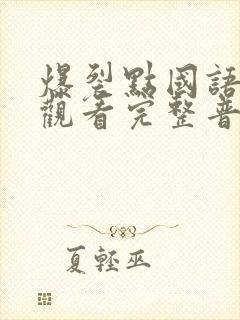 爆裂點國語
觀看完整普
夏輕巫